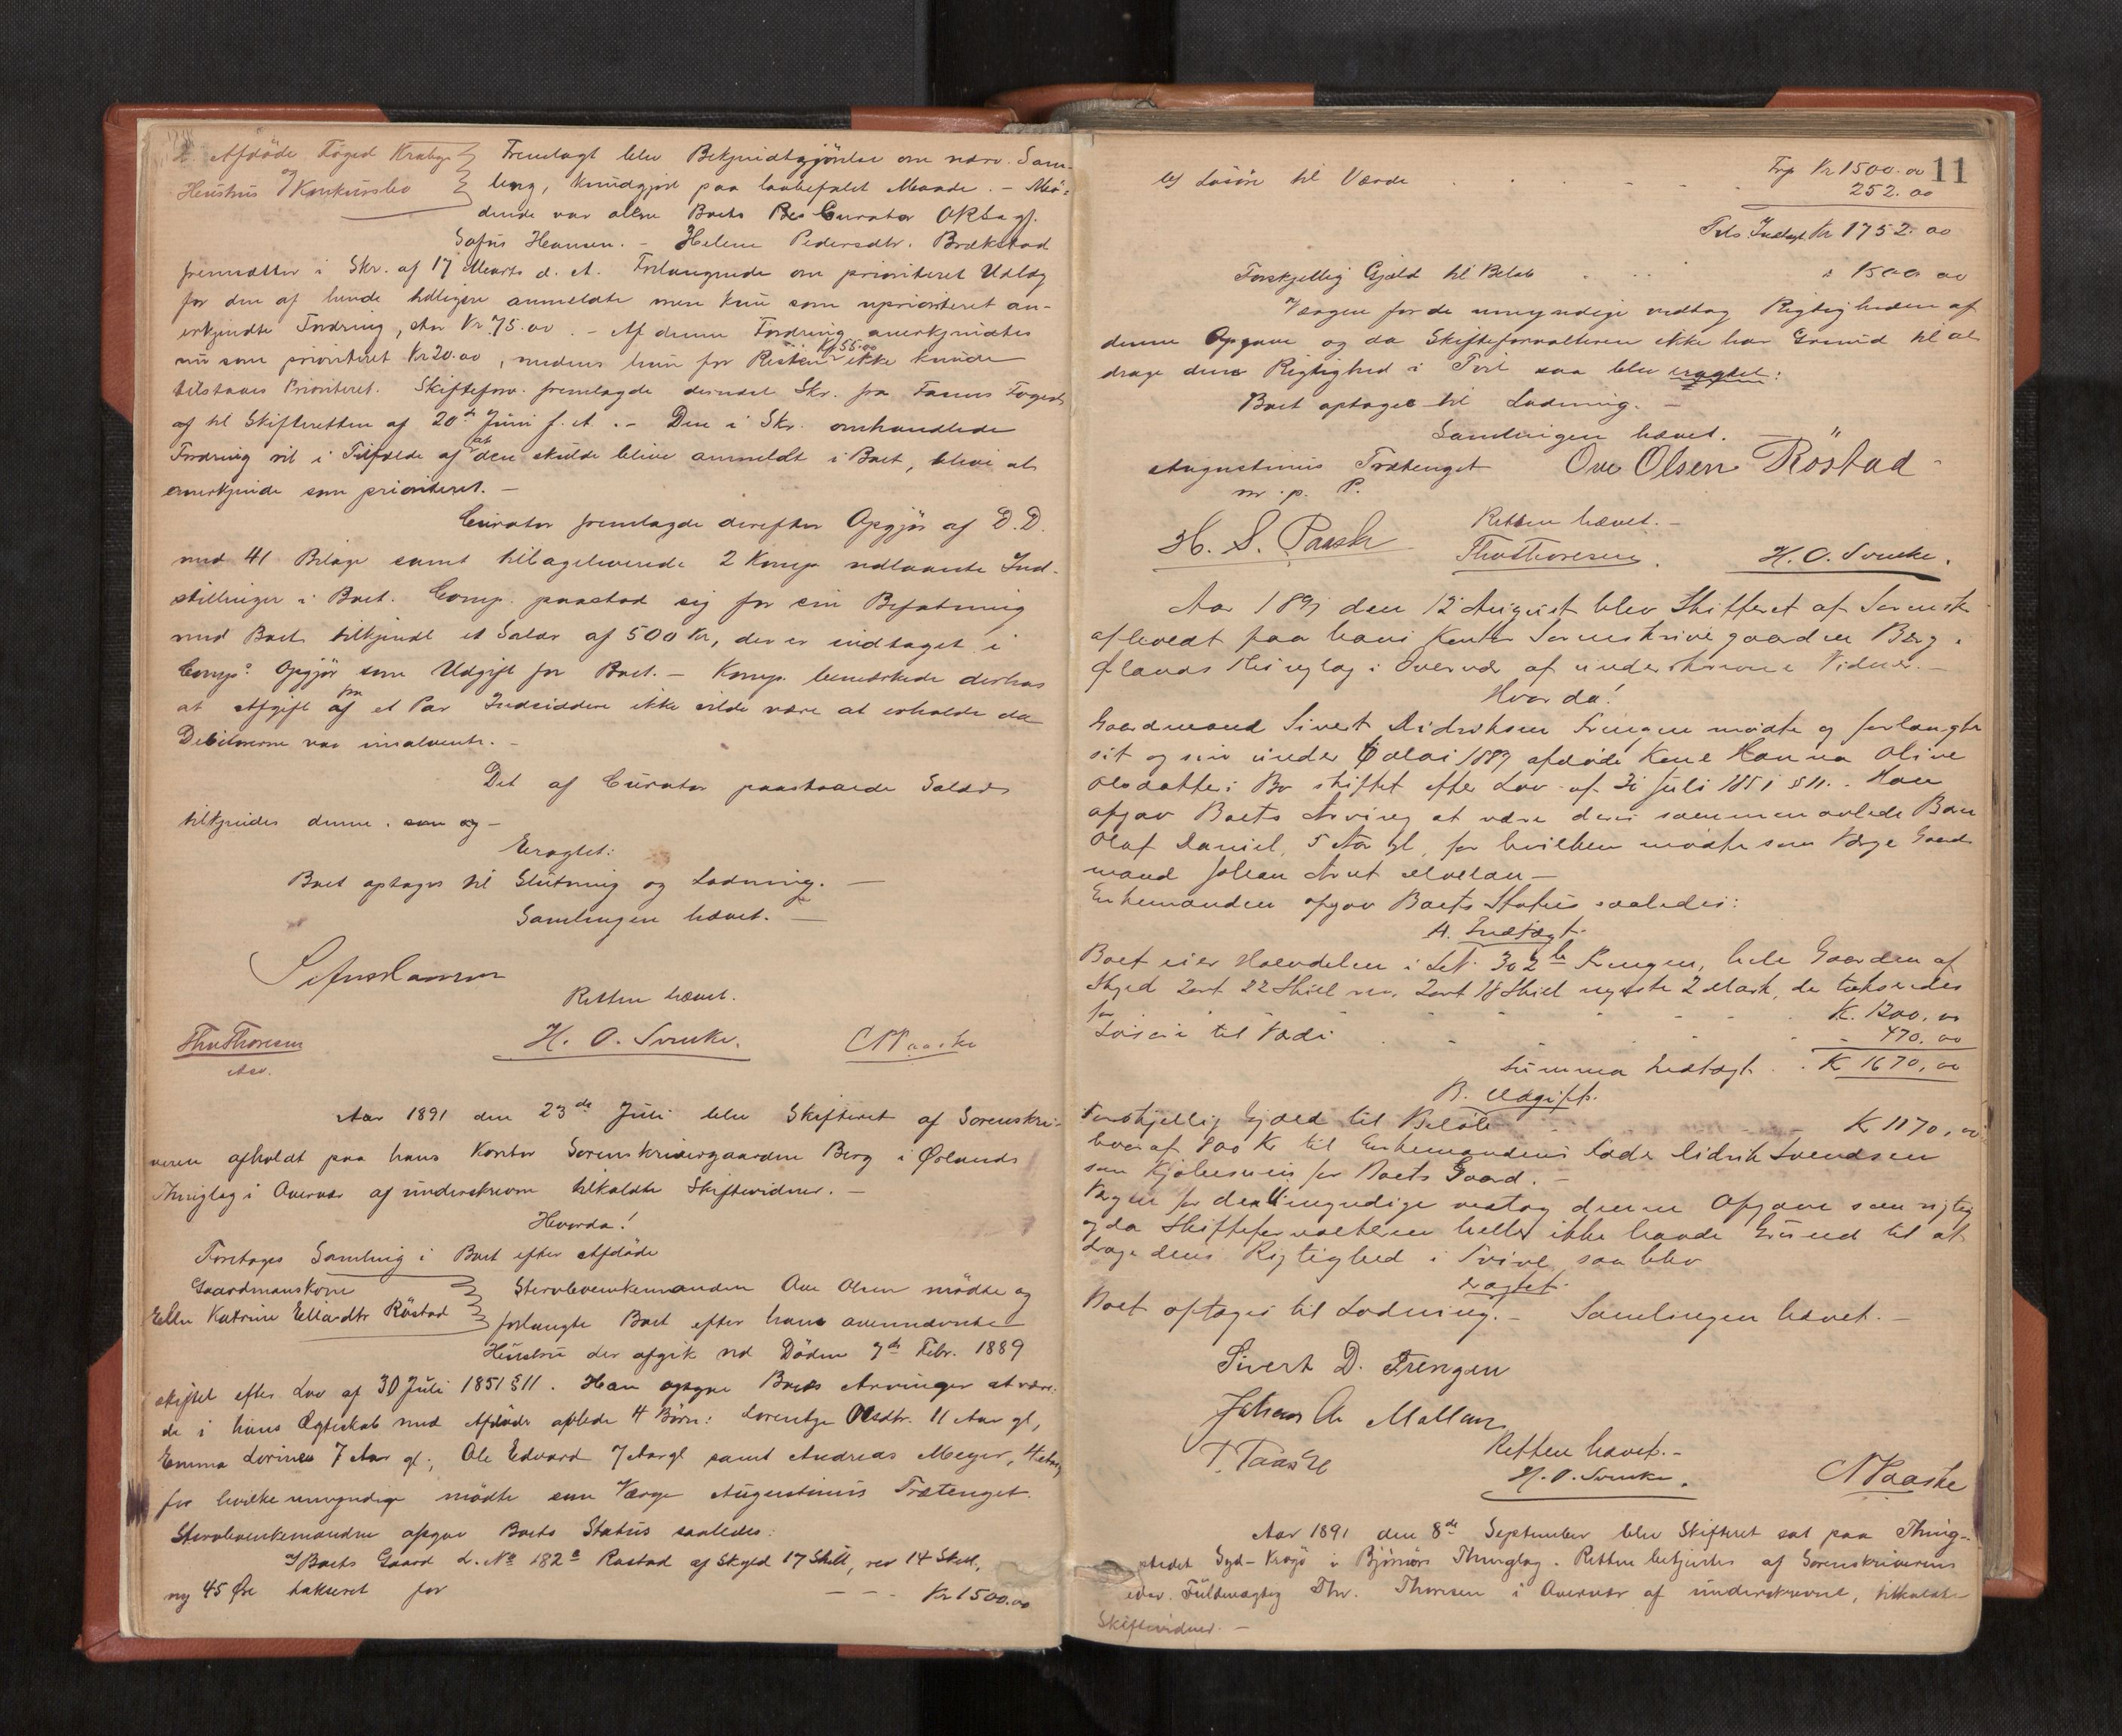 Afdöde Foged Krabye
Hustrus Konkursbo
Fremlagt blev Bekjendtgjörelse om nærv. Sam-
ling, kundgjort paa lovbefalet Maade. - Mö-
dende var alene Boets Curator
Sofus Hansen. - Helene Pedersdtr. Brækstad
fremsætter i Skr. af 17 Marts d. A. Forlangende om prioriteret Udlæg
for den af hende tidligere anmeldte men kun som uprioriteret an-
erkjendte Fordring, stor Kr. 75.00. - Af denne Fordring anerkjendtes
nu som prioriteret Kr 20.00, medens hun for Resten Kr 55.00 ikke kunde
tilstaaes Prioritet. Skifteforv. fremlagde dernæst Skr. fra Fosens Fogeds
af til Skifteretten af 20de Juni f. A. - Den i Skr. omhandlede
Fordring vil i Tilfælde af at den skulde blive anmeldt i Boet, blive at
anerkjende som prioriteret. -
Curator fremlagde derefter Opgjör af D.D.
med 41 Bilage samt tilbageleverede 2 Komp. udlaante Ind-
stillinger i Boet. Comp. paastod sig for sin Befatning
med Boet tilkjendt et Salær af 500 Kr, der er indtaget i
Comps Opgjör som Udgift for Boet. - Komp. bemærkede derhos
at Afgift fra et Par Indsiddere ikke vilde være at erholde da
Debitorerne var insolvente. -
Det af Curator paastaaede Salær
tilkjendes denne. som og -
Eragtet:
Boet optages til Slutning og Lodning. -
Samlingen hævet. -
Sofus Hansen
Retten hævet.
Thv Thoresen
H. O. Svenke.
C N Paaske
Aar 1891 den 23de Juli blev Skifteret af Sorenskri-
veren afholdt paa hans Kontor Sorenskrivergaarden Berg i Ørlands
Thinglag i Overvær af underskrevne tilkaldte Skiftevidner. -
Hvorda!
Foretages Samling i Boet efter Afdöde
Gaardmanskone
Ellen Katrine Ellardtr Röstad
Stervboenkemanden Ove Olsen mödte og
forlangte Boet efter hans ovennævnte
Hustru der afgik ved Döden 7de Febr. 1889
skiftet efter Lov af 30 Juli 1851 § 11. Han opgav Boets Arvinger at være:
de i hans Ægteskab med Afdöde avlede 4 Börn: Lorentze Olsdtr. 11 Aar gl,
Emma Lorine 7 Aar gl., Ole Edvard 7 Aar gl samt Andreas Meyer, 4 Aar,
for hvilke umyndige mödte som Værge Augustinus Trætenget.
Stervboenkemanden opgav Boets Status saaledes:
a) Boets Gaard L. No 182a Röstad af Skyld 17 Skill, rev 14 Skill,
ny 45 Öre takseret for - - - Kr 1500.00
11
b) Lösöre til Værdi
Trsp Kr 1500.00
252.00
Tils. Indtægt Kr 1752.00
Forskjellig Gjæld til Belöb " 1500 00
Værgen for de umyndige vedtog Rigtigheden af
denne Opgave og da Skifteforvalteren ikke har Grund til at
drage dens Rigtighed i Tvil saa blev eragtet:
Boet optages til Lodning. -
Samlingen hævet.
Augustinus Trætenget
m. p. P.
Ove Olsen Röstad
Retten hævet. -
H. S. Paaske
Thv Thoresen.
H. O. Svenke.
Aar 1891 den 12 August blev Skifteret af Sorenskr
afholdt paa hans Kontor Sorenskrivergaarden Berg i
Ørlands Thinglag i Overvær af underskrevne Vidner. -
Hvorda!
Gaardmand Sivert Didriksen Frengen mødte og forlangte
sit og sin under 1889 afdøde Kone Hanna Olive
Olsdatters Bo skiftet efter Lov af 30 Juli 1851 § 11. Han
opgav Boets Arving at være deres sammen avlede Barn
Olaf Daniel, 5 Aar gl, for hvilken mødte som Værge Gaard-
mand Johan Arnt -
Enkemanden opgav Boets Status saaledes:
A. Indtægt.
Boet eier Halvdelen i LN. 302b Frengen, hele Gaarden af
Skyld 2 ort 22 Skill rev. 2 ort 18 Skill nyeste 2 Mark, de takseredes
for K. 1200,00
Løsøre til Værdi 470,00
Summa Indtægt K 1670,00
B. Udgift.
Forskjellig Gjæld til Beløb K 1170,00
hvoraf 800 Kr til Enkemandens Fader Didrik Svendsen
som Kjøbesum for Boets Gaard. -
Værgen for den Umyndige vedtog denne Opgave som rigtig
og da Skifteforvalteren heller ikke havde Grund til at
drage dens Rigtighed i Tvivl saa blev
eragtet.
Boet optages til Lodning. - Samlingen hævet. -
Sivert D. Frengen
Retten hævet. -
H. O. Svenke.
C N Paaske
Aar 1891 den 8de September blev Skifteret sat paa Thing-
stedet Syd-Krogö i Björnörs Thinglag. Retten betjentes af Sorenskriverens
edsv. Fuldmægtig Thv. Thoresen i Overvær af underskrevne, tilkaldte
Skiftevidner. -